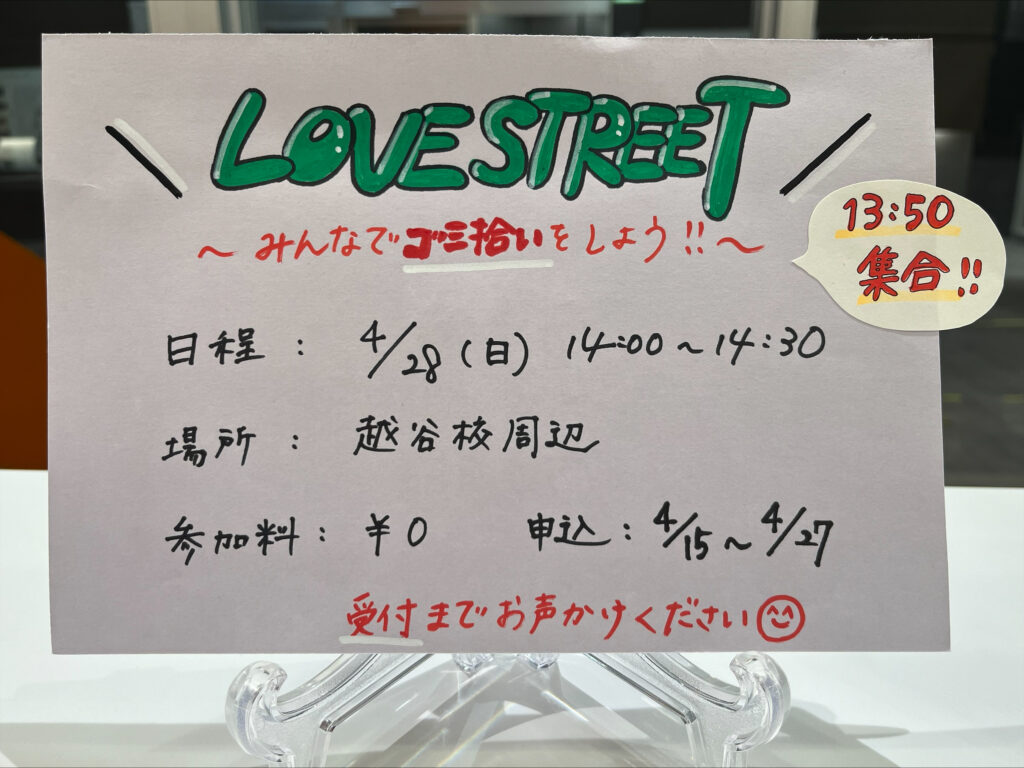 LOVE STREET
～みんなでゴミ拾いをしよう!!～
13:50
集合!!
日程： 4/28(日) 14:00～14:30
場所： 越谷校周辺
参加料： ¥0 申込： 4/15～4/27
受付までお声かけください